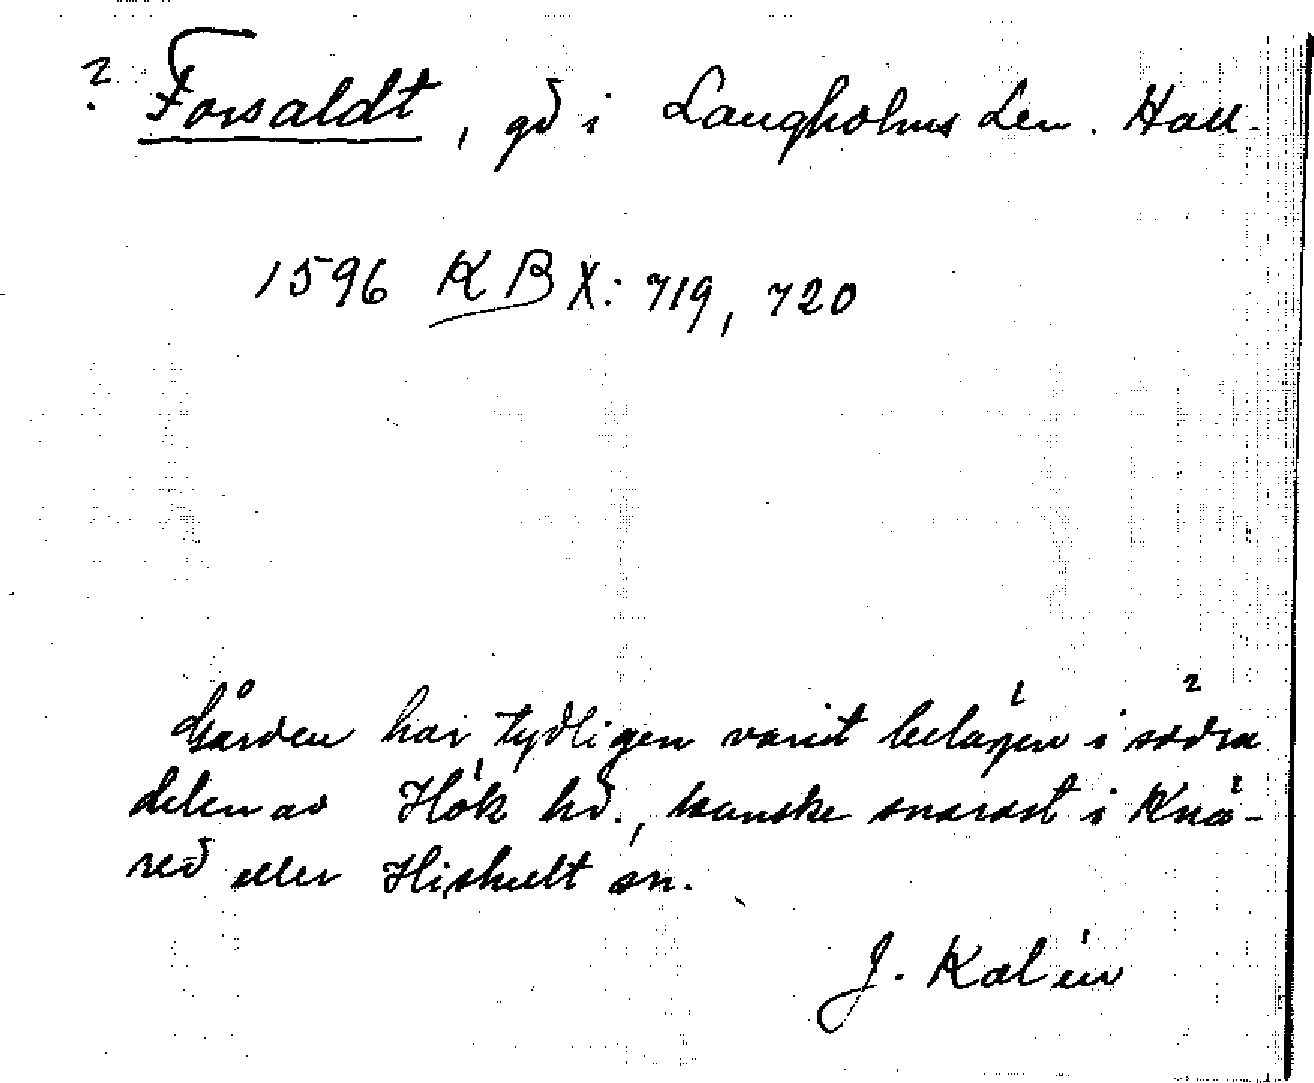 ? Forsaldt, gd i Laugholms Len. Hall.
1596 KB X: 719, 720
Gården har tydligen varit belägen i södra
delen av Hök hd., kanske snarast i Knä-
red eller Hishult sn.
J. Kalén